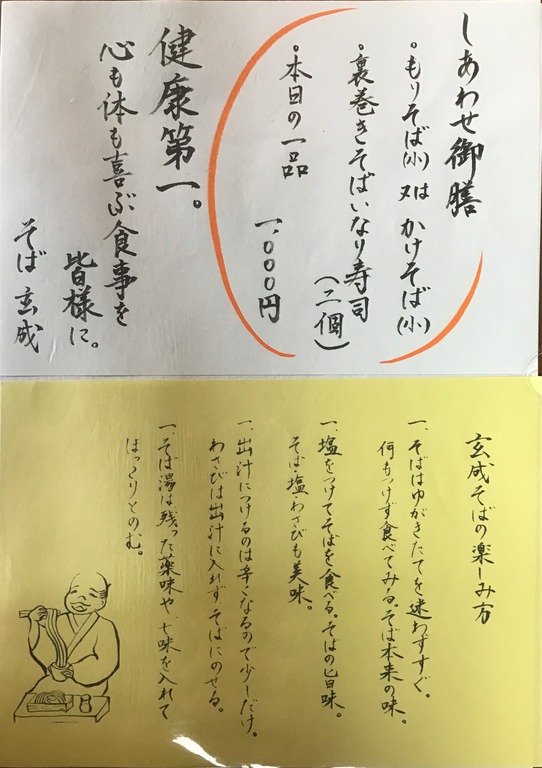 しあわせ御膳
・もりそば(小)又はかけそば(小)
・裏巻きそばいなり寿司
(二個)
・本日の一品
一、〇〇〇円
健康第一。
心も体も喜ぶ食事を
皆様に。
そば 玄成
玄成そばの楽しみ方
一、そばはゆがきたてを迷わずすぐ。
何もつけず食べてみる。そば本来の味。
一、塩をつけてそばを食べる。そばの旨味。
そば・塩・わさびも美味。
一、出汁につけるのは辛くなるので少しだけ。
わさびは出汁に入れず そばにのせる。
一、そば湯は残った薬味や、七味を入れて
ほっくりとのむ。